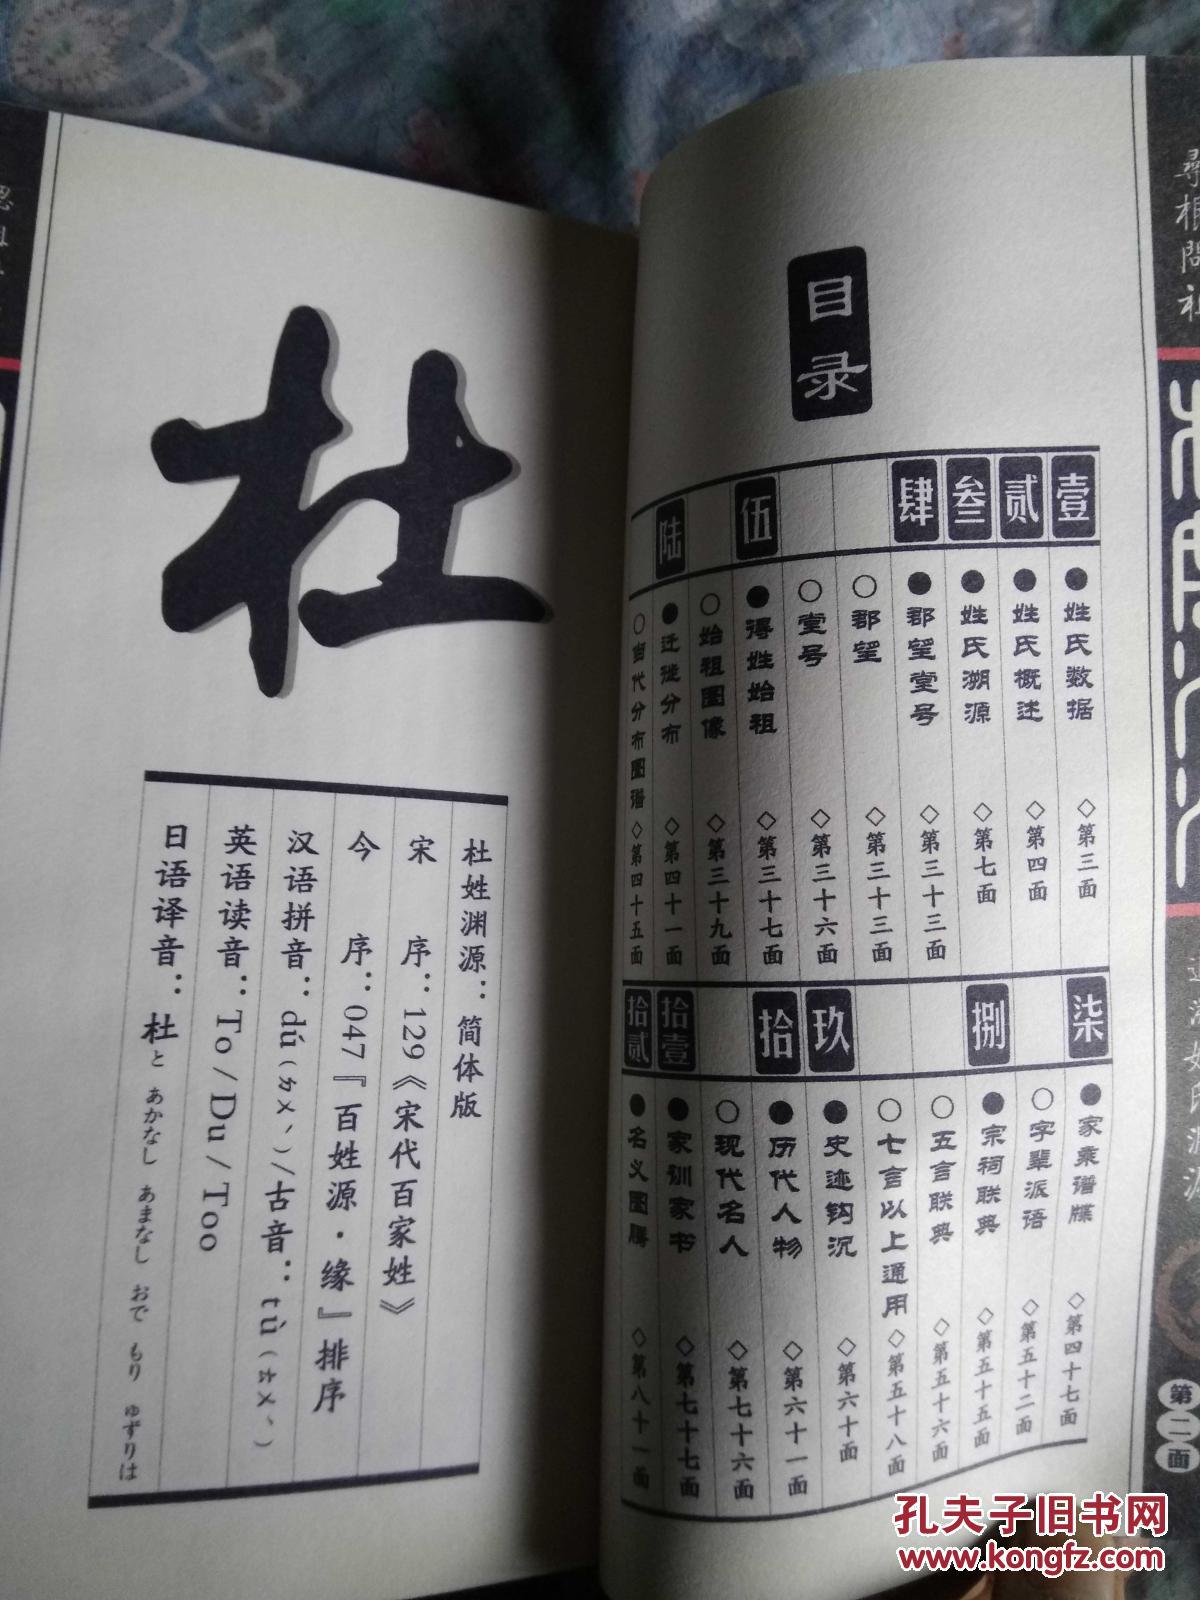 杜
杜姓渊源：简体版
宋　序：129《宋代百家姓》
今　序：047『百姓源·缘』排序
汉语拼音：dú(ㄉㄨˋ)/古音：tú(ㄊㄨˋ)
英语读音：To/Du/Too
日语译音：杜と あかなし あまなし おで もり ゆずりは
目录
壹 ●姓氏数据 ◇第三面
贰 ●姓氏概述 ◇第四面
叁 ●姓氏溯源 ◇第七面
肆 ●郡望堂号 ◇第三十三面
○郡望 ◇第三十三面
○堂号 ◇第三十六面
伍 ●得姓始祖 ◇第三十七面
○始祖图像 ◇第三十九面
陆 ●迁徙分布 ◇第四十一面
○当代分布图谱 ◇第四十五面
柒 ●家乘谱牒 ◇第四十七面
○字辈派语 ◇第五十二面
捌 ●宗祠联典 ◇第五十五面
○五言联典 ◇第五十六面
○七言以上通用 ◇第五十八面
玖 ●史迹钩沉 ◇第六十面
拾 ●历代人物 ◇第六十一面
○现代名人 ◇第七十六面
拾壹 ●家训家书 ◇第七十七面
拾贰 ●名义图腾 ◇第八十一面
尋根問祖
第二面
孔夫子旧书网
www.kongfz.com